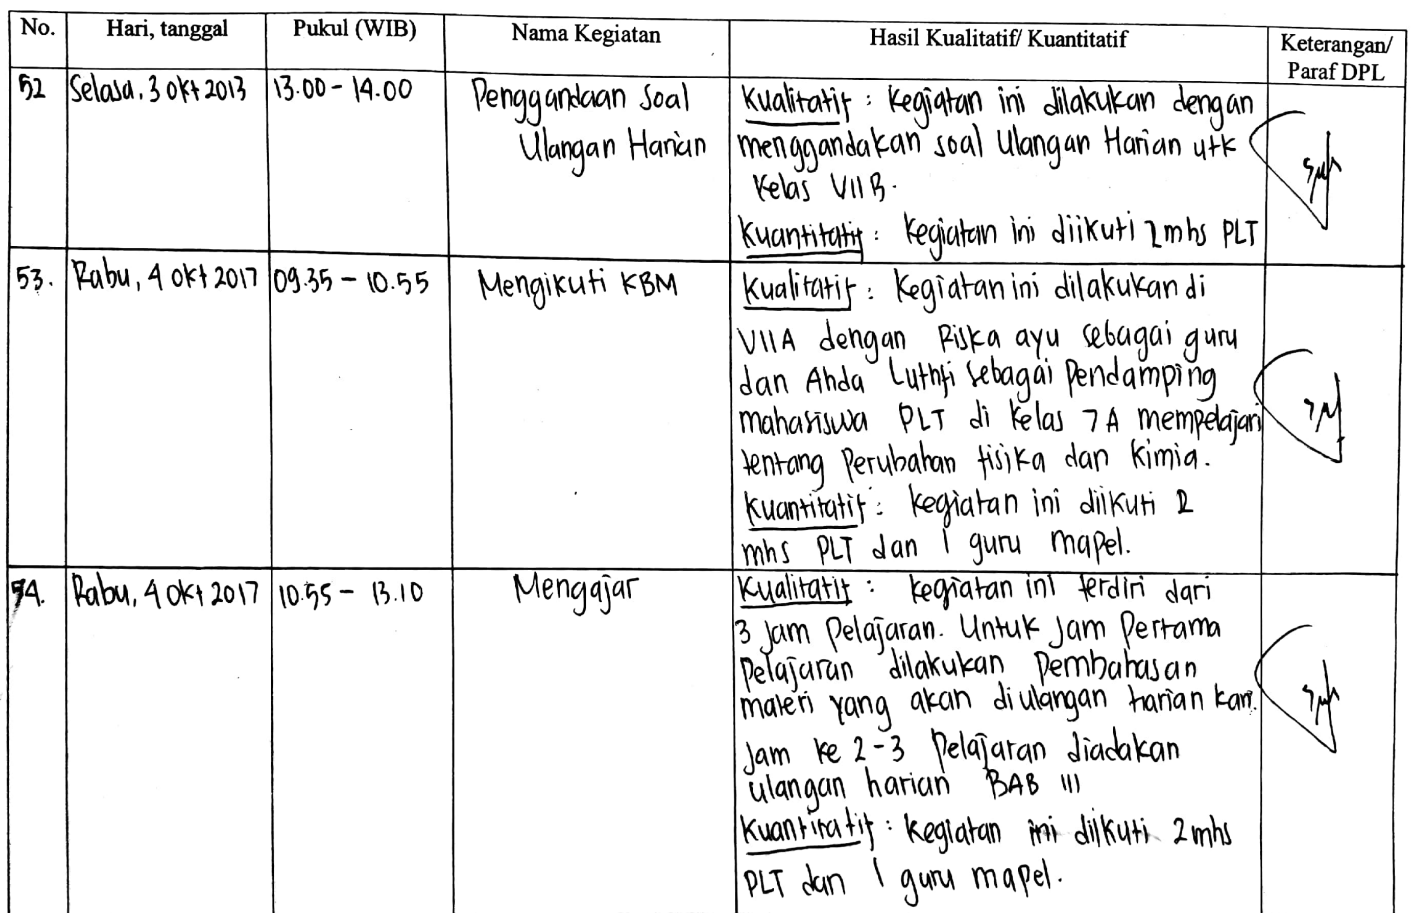 No. Hari, tanggal Pukul (WIB) Nama Kegiatan Hasil Kualitatif/ Kuantitatif Keterangan/
Paraf DPL
52 Selasa, 3 Okt 2013 13.00 - 14.00 Penggandaan Soal Kualitatif : Kegiatan ini dilakukan dengan
Ulangan Harian menggandakan soal Ulangan Harian utk
Kelas VII B.
Kuantitatif : Kegiatan ini diikuti 2 mhs PLT
53. Rabu, 4 Okt 2017 09.35 - 10.55 Mengikuti KBM Kualitatif : Kegiatan ini dilakukan di
VIIA dengan Riska ayu sebagai guru
dan Ahda Luthfi sebagai Pendamping
mahasiswa PLT di Kelas 7A mempelajari
tentang Perubahan fisika dan Kimia.
Kuantitatif : Kegiatan ini diikuti 2
mhs PLT dan 1 guru mapel.
54. Rabu, 4 Okt 2017 10.55 - 13.10 Mengajar Kualitatif : Kegiatan ini terdiri dari
3 Jam Pelajaran. Untuk Jam Pertama
Pelajaran dilakukan Pembahasan
materi yang akan diulangan harian kan.
Jam ke 2-3 Pelajaran diadakan
ulangan harian BAB III
Kuantitatif : Kegiatan ini diikuti 2 mhs
PLT dan 1 guru mapel.